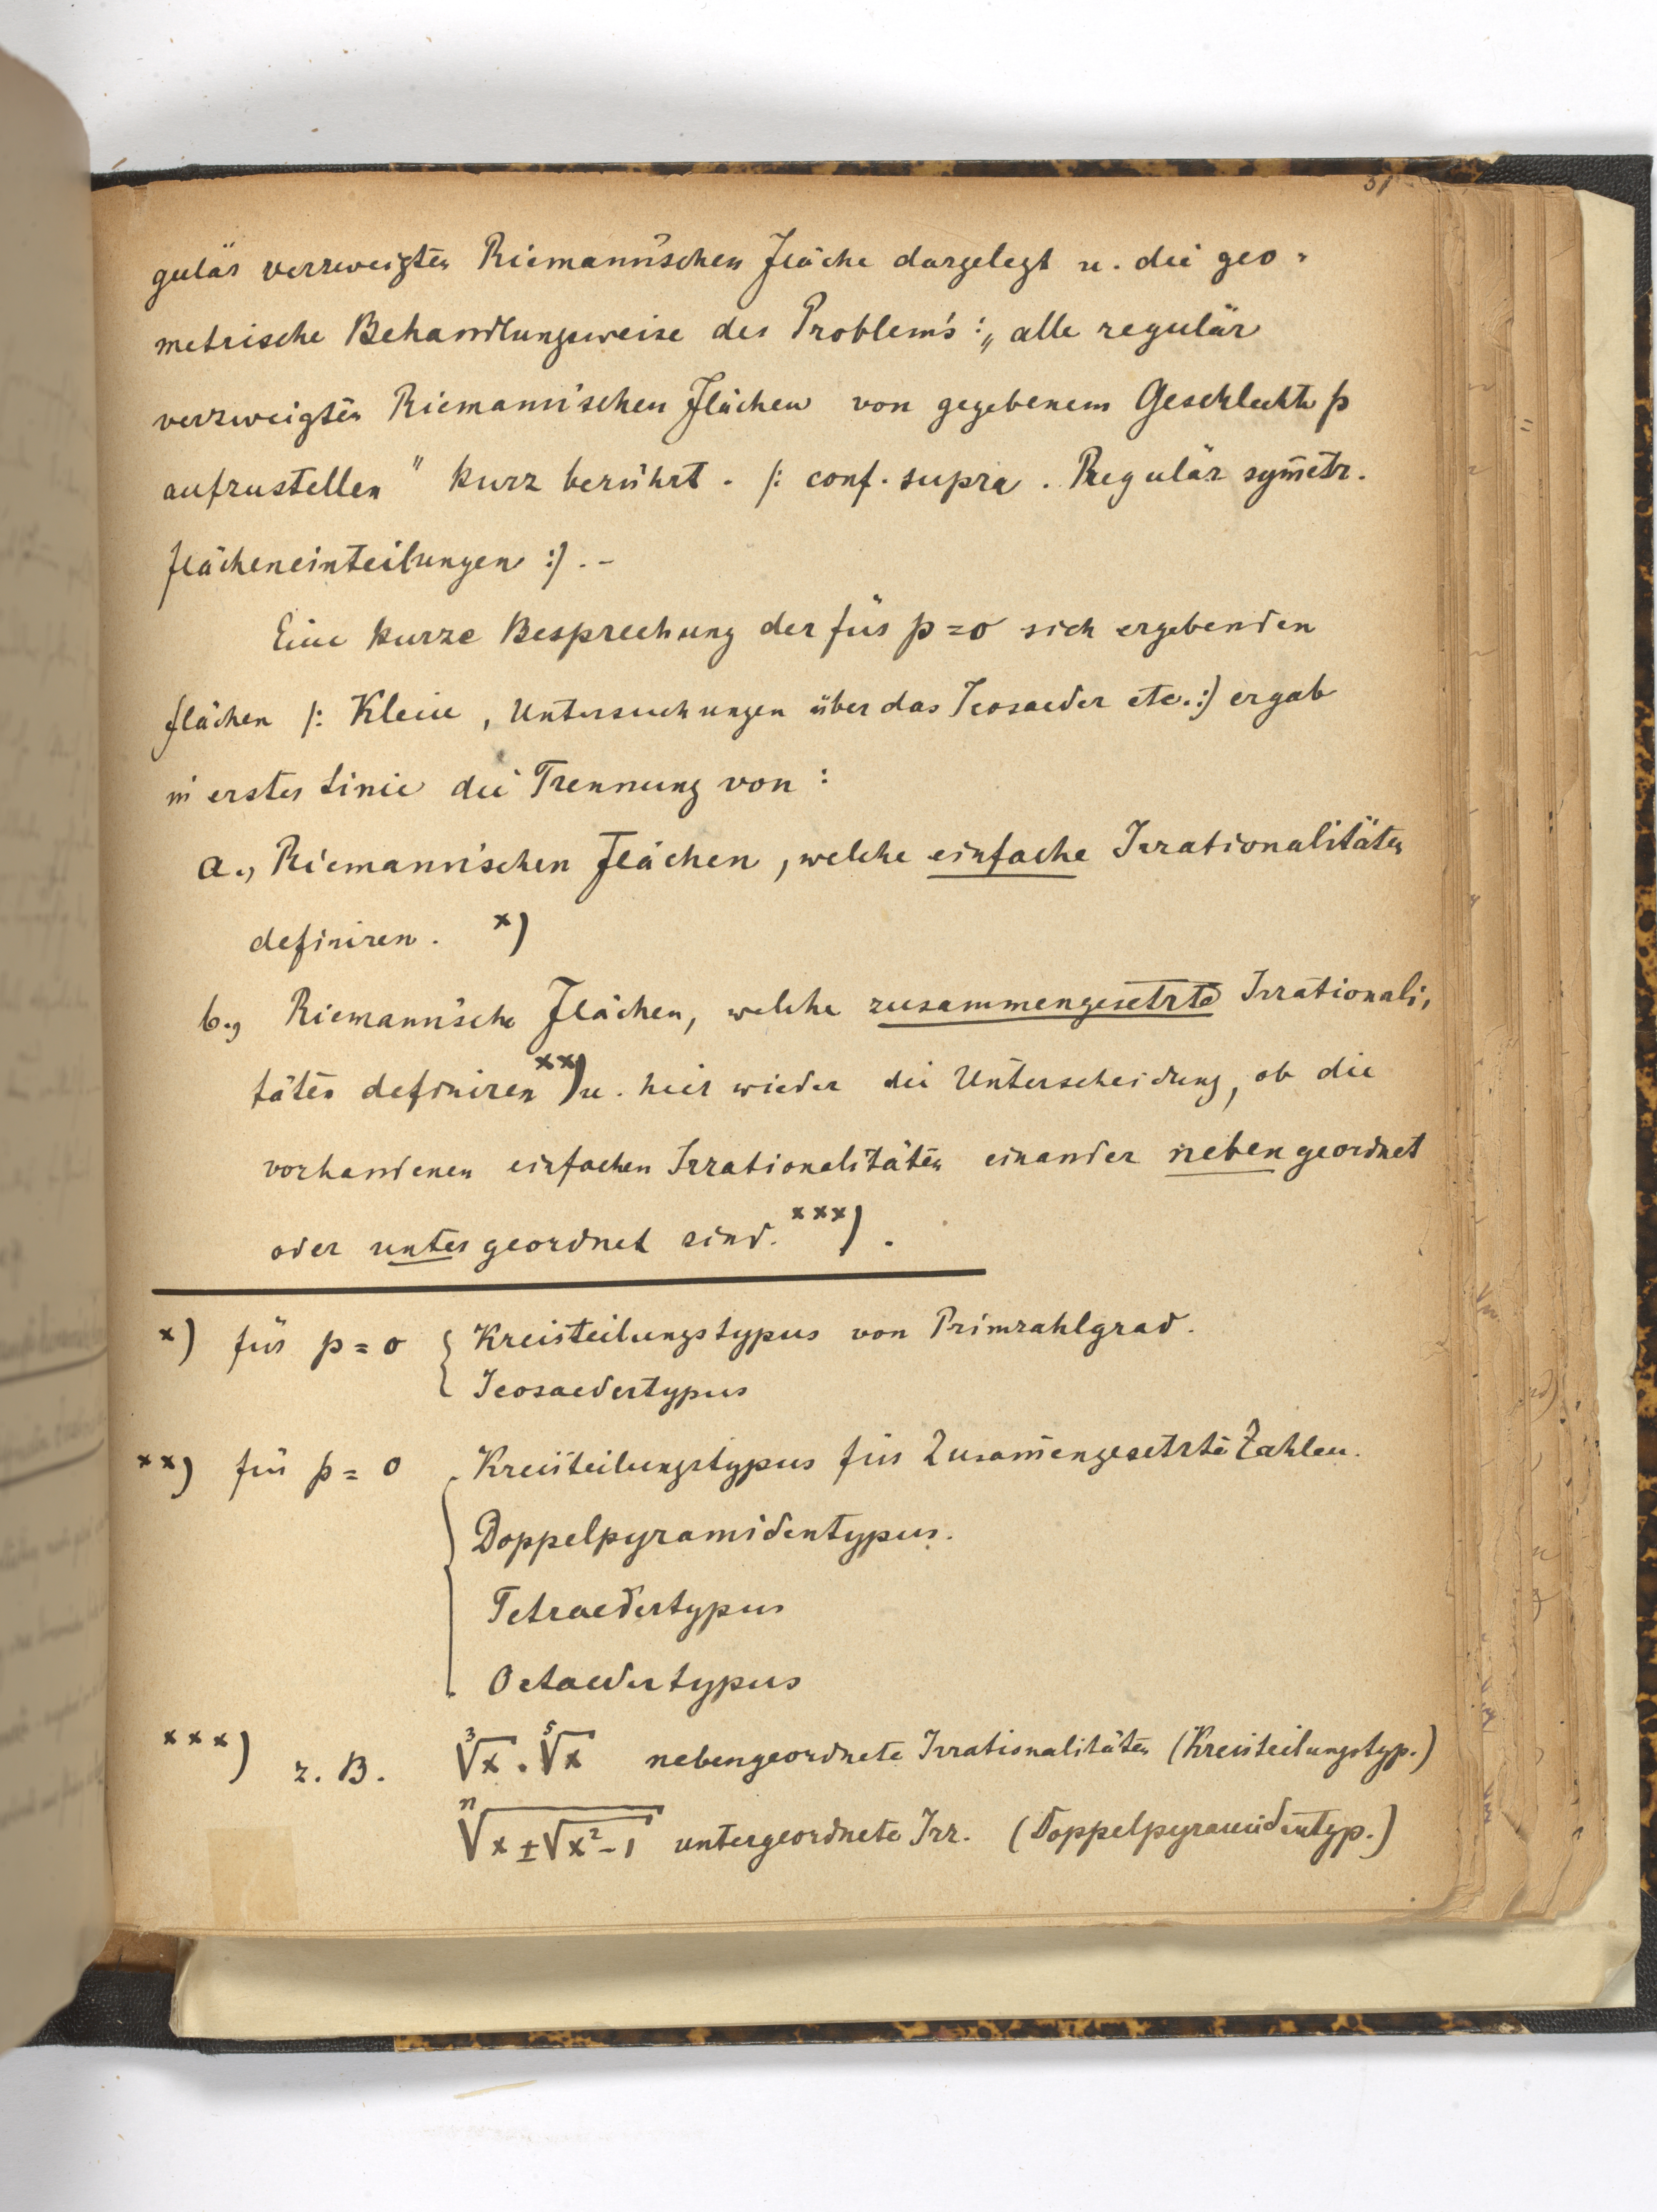 31
gulär verzweigten Riemann'schen Fläche dargelegt u. die geo-
metrische Behandlungsweise des Problem's: „alle regulär
verzweigten Riemann'schen Flächen von gegebenem Geschlecht p
aufzustellen" kurz berührt. /: conf. supra. Regulär sym̄etr.
Flächeneinteilungen :/. –
Eine kurze Besprechung der für p = 0 sich ergebenden
Flächen /: Klein, Untersuchungen über das Icosaeder etc. :/ ergab
in erster Linie die Trennung von:
a., Riemann'schen Flächen, welche einfache Irrationalitäten
definiren. x)
b., Riemann'sche Flächen, welche zusammengesetzte Irrationali-
täten definiren xx) u. hier wieder die Unterscheidung, ob die
vorhandenen einfachen Irrationalitäten einander nebengeordnet
oder untergeordnet sind. xxx).
x) für p = 0 { Kreisteilungstypus von Primzahlgrad.
Icosaedertypus
xx) für p = 0 { Kreisteilungstypus für Zusam̄engesetzte Zahlen.
Doppelpyramidentypus.
Tetraedertypus
Octaedertypus
xxx) z. B. ∛x . ⁵√x nebengeordnete Irrationalitäten (Kreisteilungstyp.)
ⁿ√(x ± √(x² − 1)) untergeordnete Irr. (Doppelpyramidentyp.)